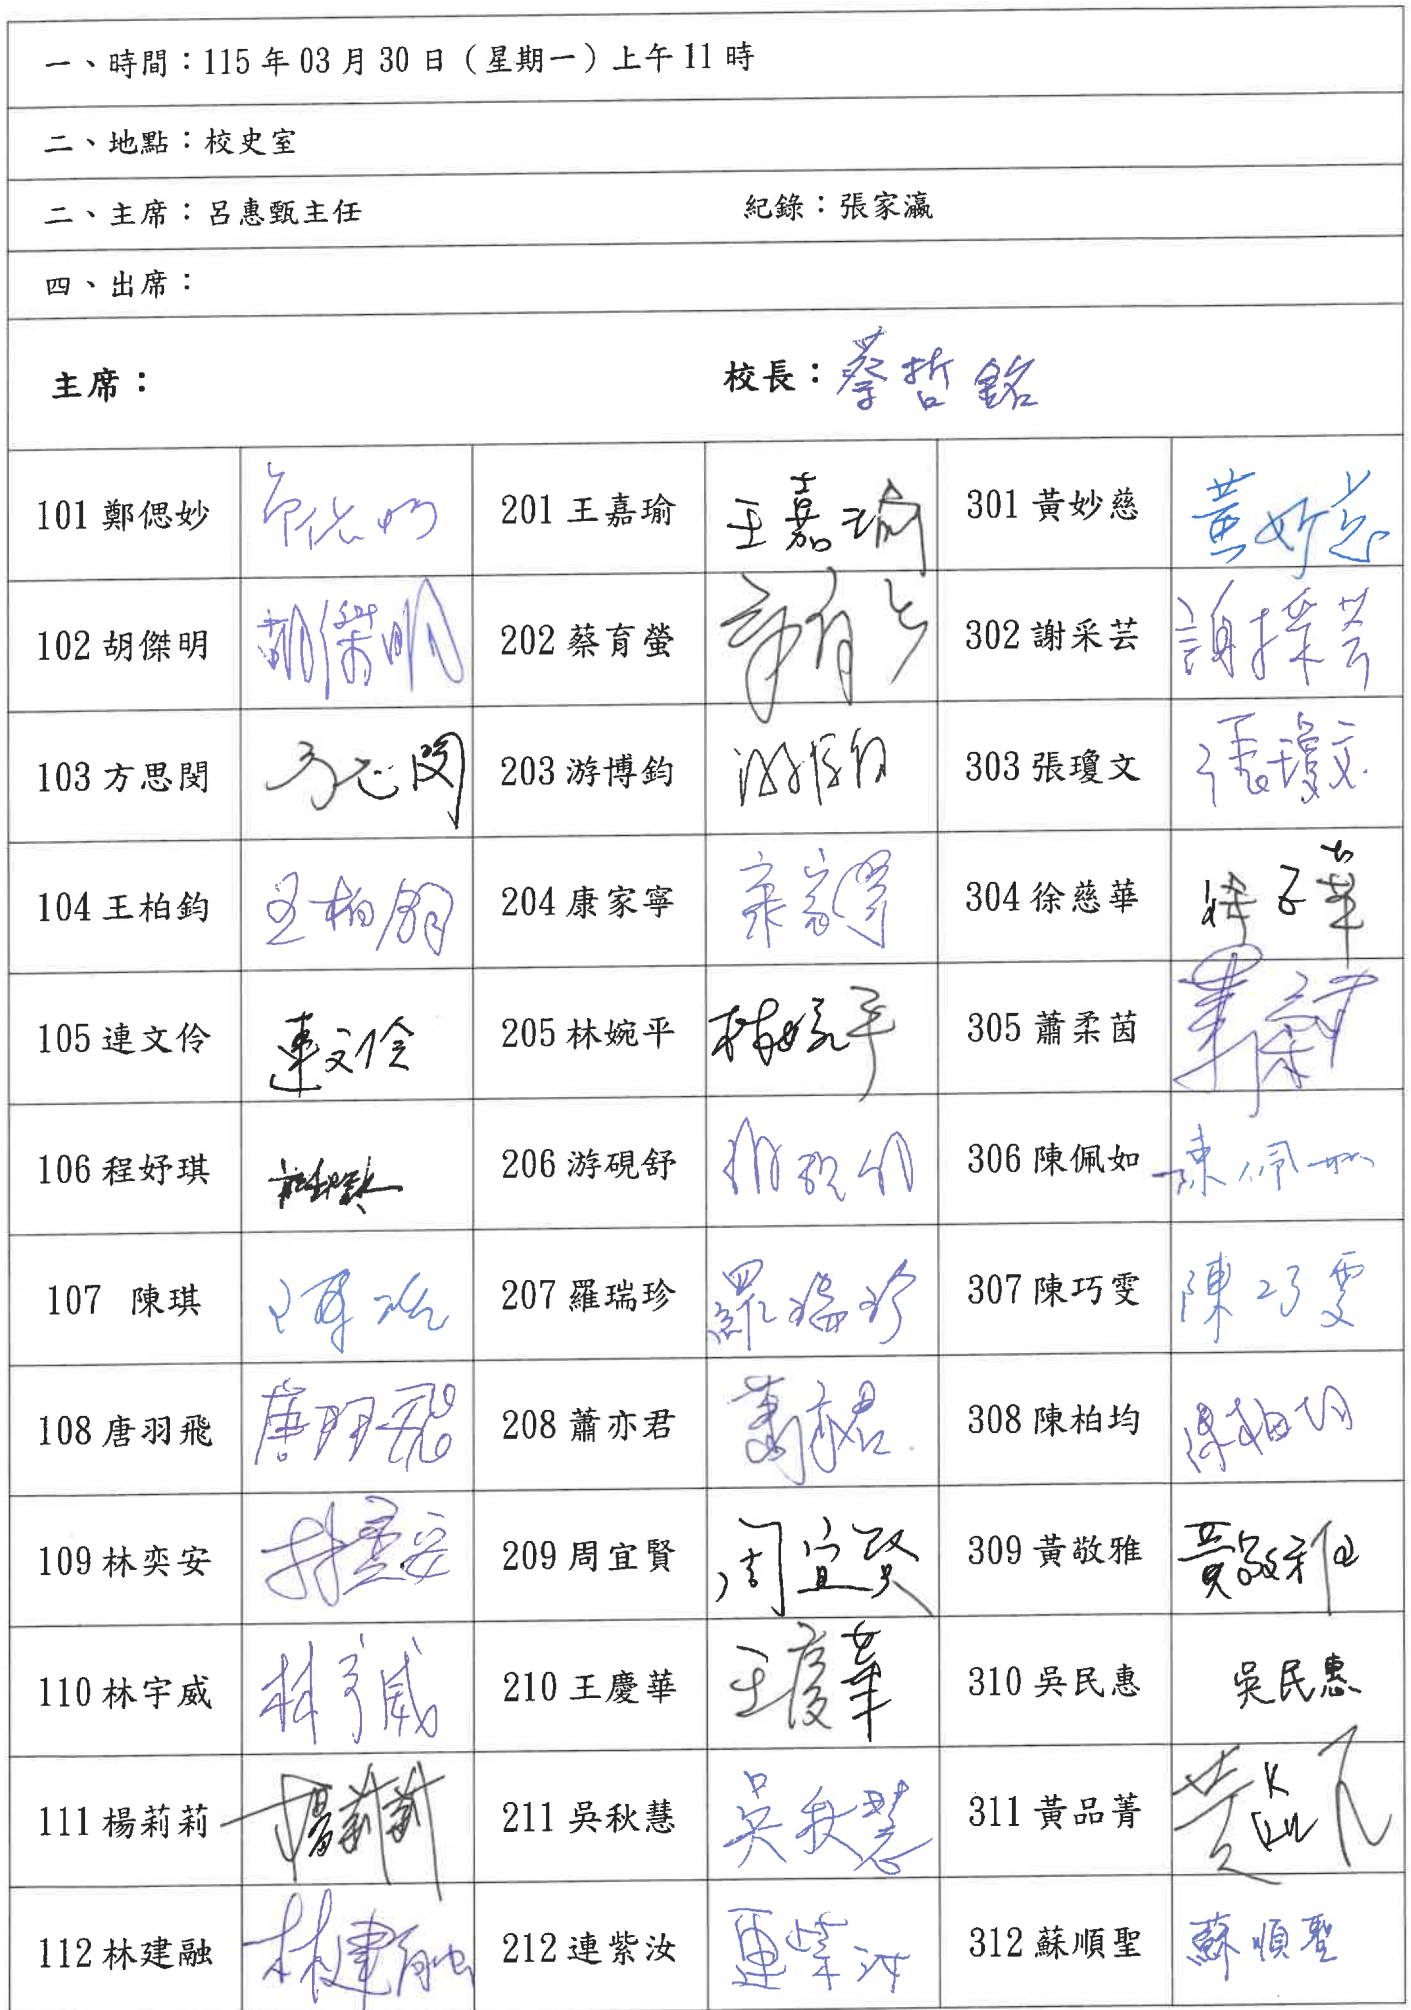 一、時間：115 年 03 月 30 日（星期一）上午 11 時
二、地點：校史室
二、主席：呂惠甄主任 紀錄：張家瀛
四、出席：
主席： 校長：蔡哲銘
101 鄭偲妙 201 王嘉瑜 王嘉瑜 301 黃妙慈 黃妙慈
102 胡傑明 胡傑明 202 蔡育螢 302 謝采芸 謝採芸
103 方思閔 方思閔 203 游博鈞 303 張瓊文 張瓊文
104 王柏鈞 王柏鈞 204 康家寧 康家寧 304 徐慈華
105 連文伶 連文伶 205 林婉平 林婉平 305 蕭柔茵
106 程妤琪 206 游硯舒 306 陳佩如 陳佩如
107 陳琪 207 羅瑞珍 羅瑞珍 307 陳巧雯 陳巧雯
108 唐羽飛 唐羽飛 208 蕭亦君 308 陳柏均 陳柏均
109 林奕安 林奕安 209 周宜賢 周宜賢 309 黃敬雅 黃敬雅
110 林宇威 林宇威 210 王慶華 王慶華 310 吳民惠 吳民惠
111 楊莉莉 楊莉莉 211 吳秋慧 吳秋慧 311 黃品菁
112 林建融 林建融 212 連紫汝 連紫汝 312 蘇順聖 蘇順聖